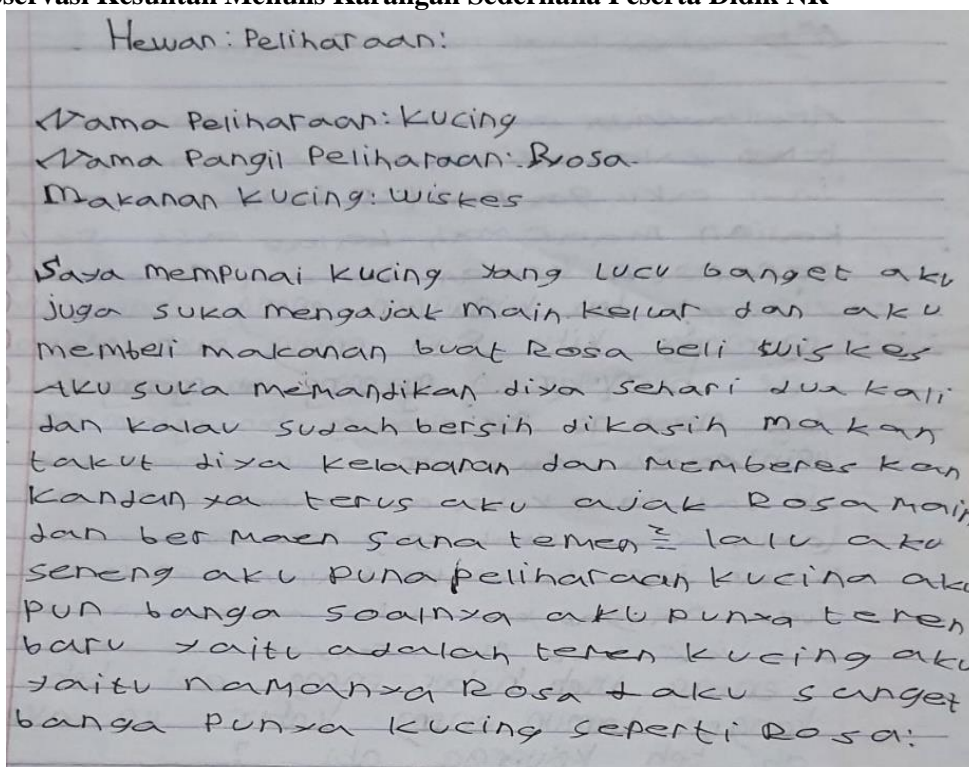 Observasi Kesulitan Menulis Karangan Sederhana Peserta Didik NK
Hewan: Peliharaan:
Nama Peliharaan: Kucing
Nama Pangil Peliharaan: Rosa.
Makanan Kucing: wiskes
Saya mempunai kucing yang Lucu banget aku
juga suka mengajak main keluar dan aku
membeli makanan buat Rosa beli wiskes
Aku suka memandikan diya sehari dua kali
dan kalau sudah bersih dikasih makan
takut diya kelaparan dan memberes kan
kandan ya terus aku ajak Rosa main
dan ber maen sana temen² lalu aku
seneng aku puna peliharaan kucina aku
pun banga soalnya aku punya temen
baru yaitu adalah temen kucing aku
yaitu namanya Rosa aku sanget
banga punya kucing seperti Rosa: